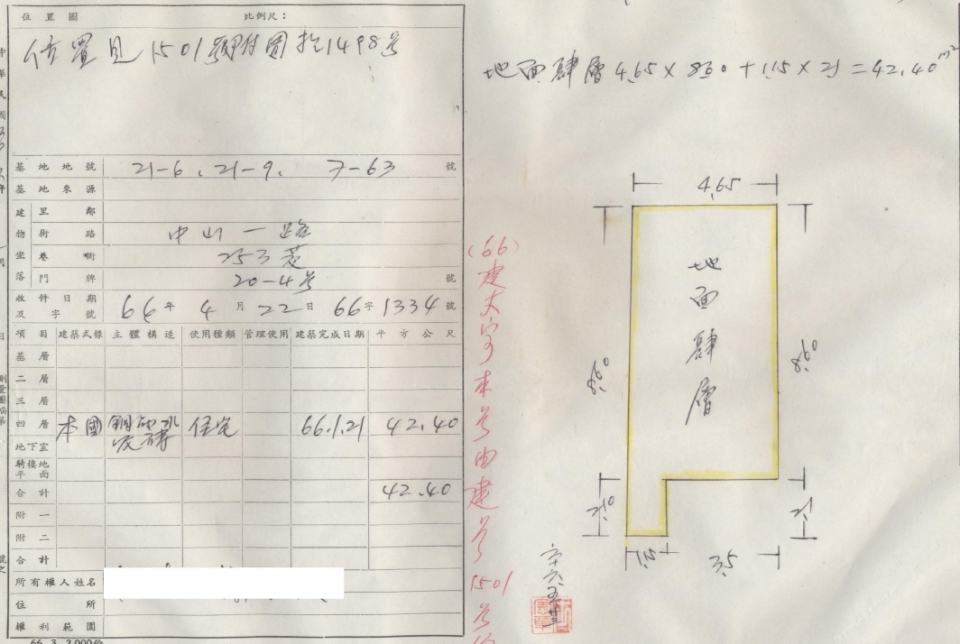 位置圖 比例尺：
位置見1501號附圖於1498号
基地地號 21-6、21-9、7-63 號
基地來源
建物坐落
里鄰
街路 中山一路
巷衖 253巷
門牌 20-4号 號
收件日期及字號 66年4月22日66字1334號
項目 建築式樣 主體構造 使用種類 管理使用 建築完成日期 平方公尺
基層
二層
三層
四層 本國 住宅 66.1.21 42.40
地下室
騎樓地平面
合計 42.40
附一
附二
合計
所有權人姓名
住所
權利範圍
66.3.2,000份
地面肆層 4.65×8.60+1.15×2.1=42.40m²
4.65
地面肆層
8.60
8.60
2.10
2.1
1.15
3.5
(66)建大字本号由建号1501号